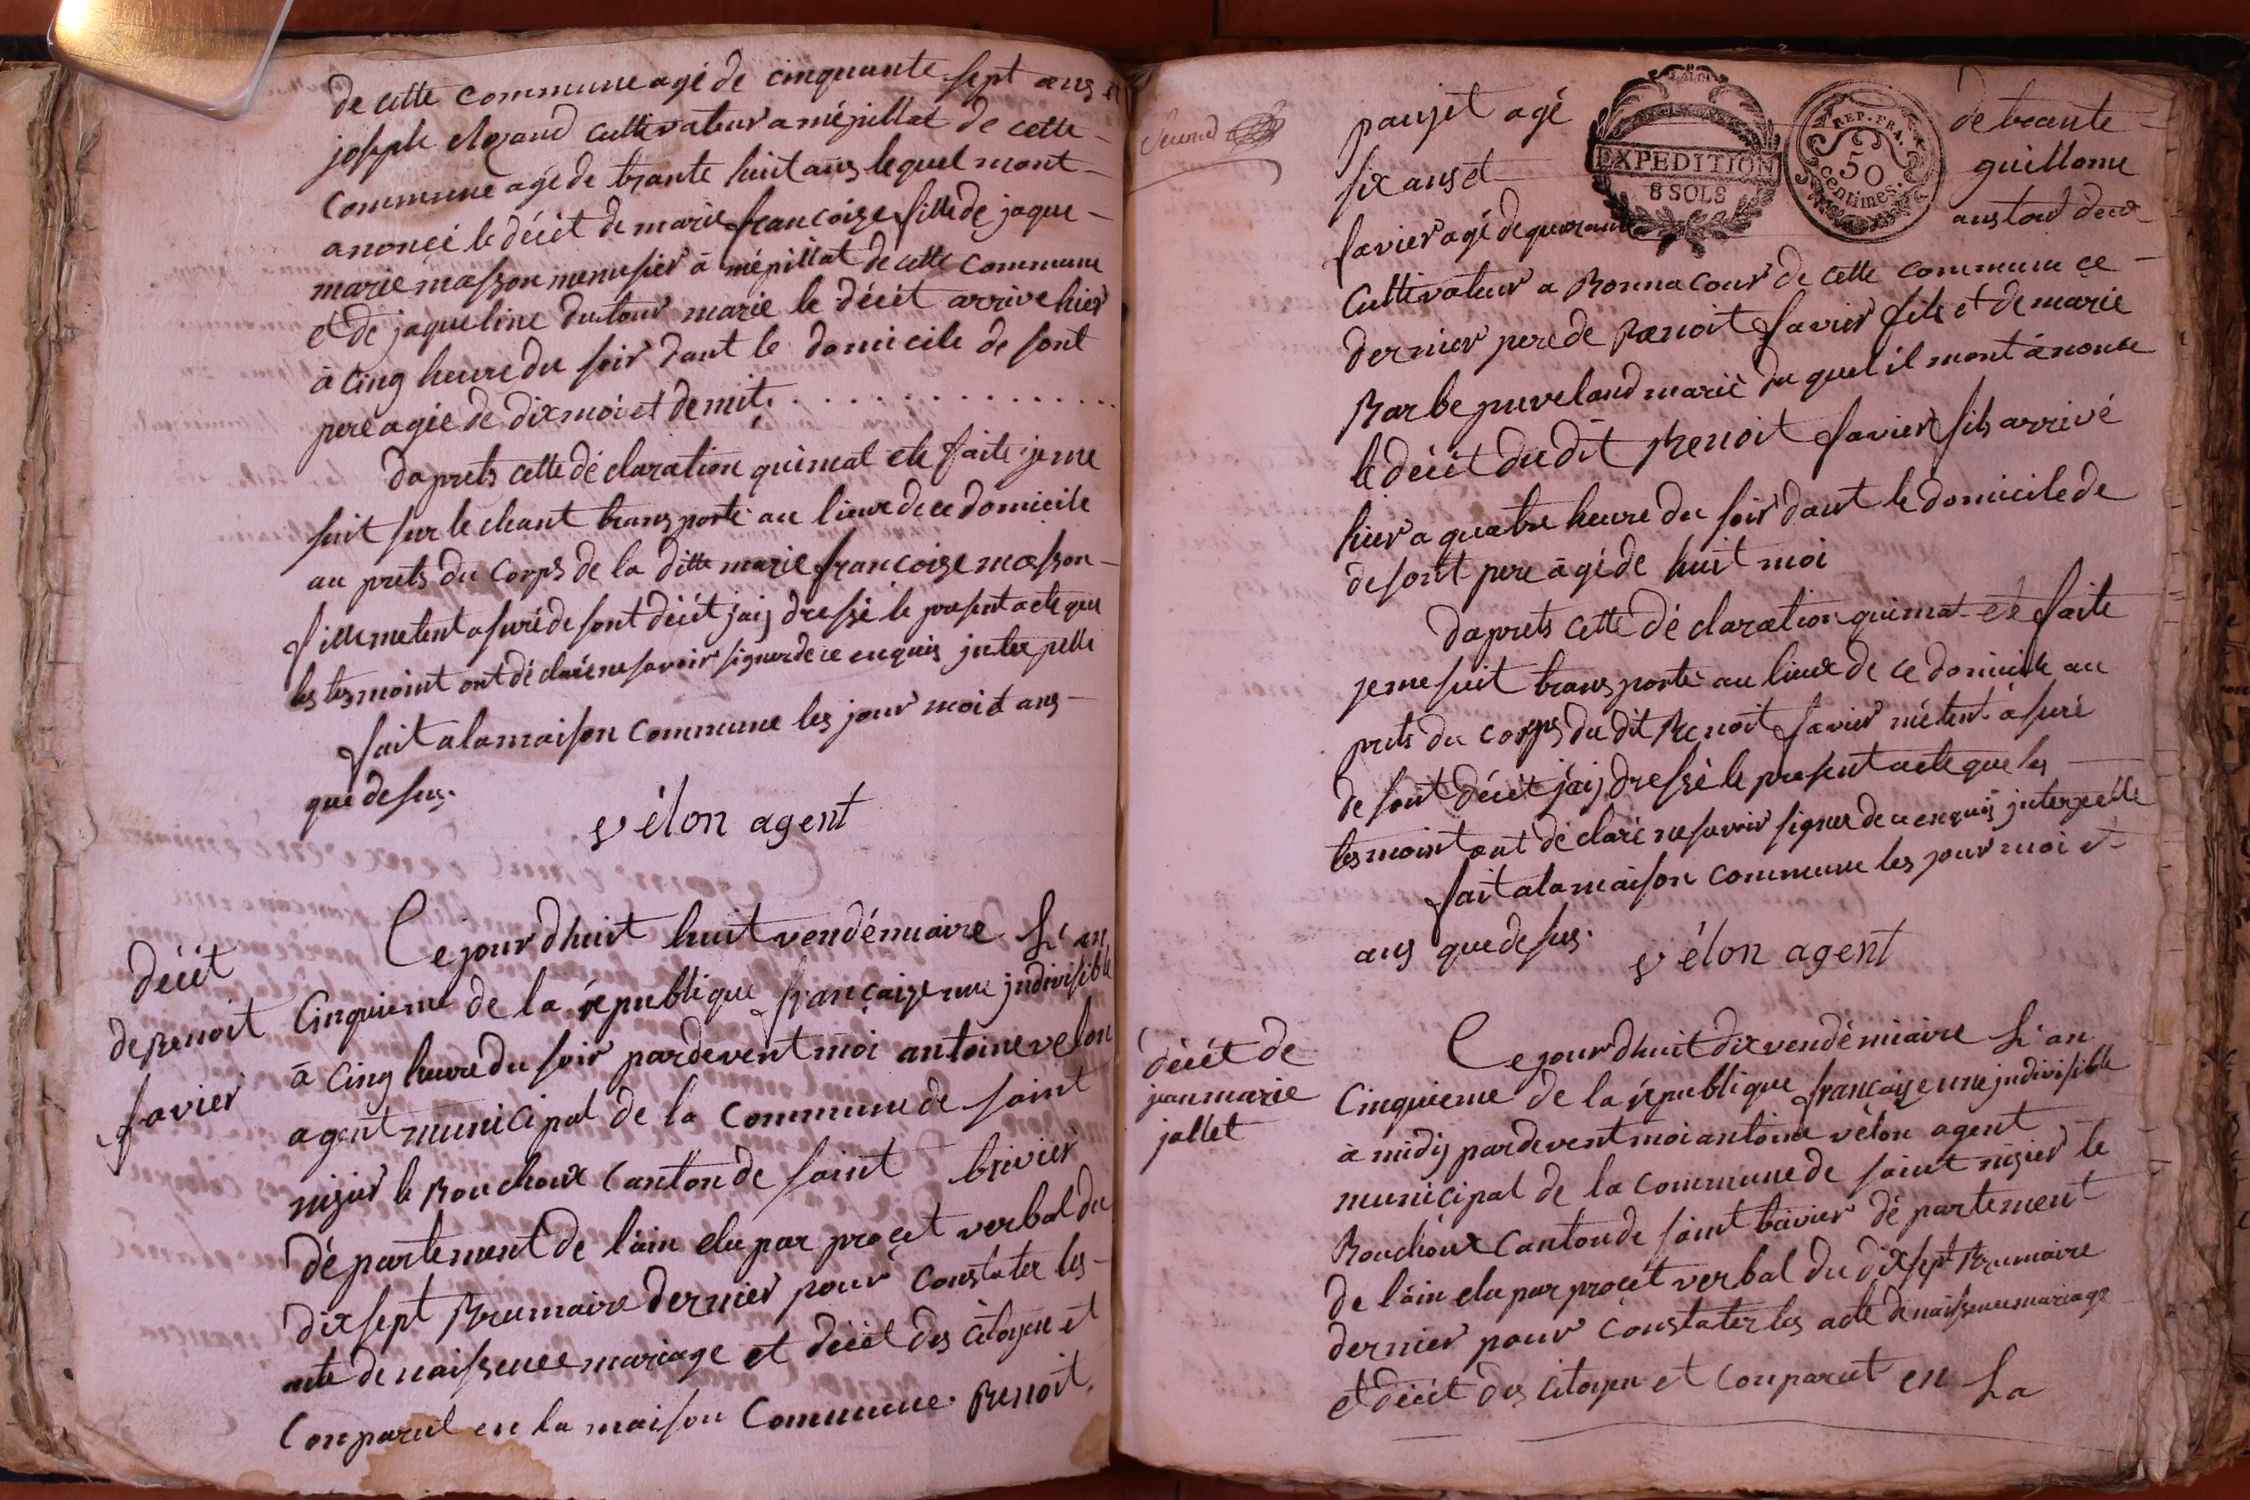 de cette commune agé de cinquante sept ans et
joseph clozand cultivateur a mépillat de cette
commune agé de trante huit ans lequel mont
anoncé le décét de marie francoize fille de jaque
marie masson menusier à mépillat de cette commune
et de jaqueline dutour marié le décét arrive hier
à cinq heure du soir dant le domicile de sont
pere agée de dix moi et demit
daprets cette déclaration quimat ete faite je me
suit sur le chant transporté au lieux de ce domicile
au prets du corps de la ditte marie francoize masson
fille metent asuré de sont décét jaij dressé le present acte que
les tesmoint ont déclaré ne savoir signer de ce enquis interpellé
fait a la maison commune les jour moi et ans
que desus.
vélon agent
décét
de Benoit
favier
Ce jourdhuit huit vendémiaire L'an
Cinquieme de la république françaize une jndivisible
à cinq heure du soir pardevent moi antoine velon
agent municipal de la commune de saint
nizier le Bouchoux canton de saint trivier
département de l'ain elu par procét verbal du
dix sept Brumaire dernier pour constater les
acte de naissence mariage et décét des citoyen et
Conparut en la maison Commune Benoit
paujet agé de trante
six ans et guillome
favier agé de quarante ans tout deux
EXPEDITION
8 SOLS
REP. FRA.
50
centimes.
Cultivateur a Bonnacour de cette commune ce
dernier pere de Benoit favier fils et de marie
Barbe puveland marié du quel il mont anonse
le décét dudit Benoit favier fils arrivé
hier a quatre heure du soir dant le domicile de
de sont pere àgé de huit moi
daprets cette déclaration quimat ete faite
je me suit transporté au lieux de ce domicile au
prets du corps du dit Benoit favier métent àsuré
de sont décét j'aij dressé le present acte que les
tesmoint ont déclaré ne savoir signer de ce enquis jnterpellé
fait a la maison commune les jour moi et
ans que desus.
vélon agent
décét de
jean marie
jallet
Ce jourdhuit dix vendémiaire L'an
Cinquieme de la république françaize une jndivisible
à midij pardevent moi antoine vélon agent
municipal de la commune de saint nizier le
Bouchoux canton de saint trivier département
de l'ain elu par procét verbal du dix sept Brumaire
dernier pour constater les acte de naissence mariage
et décét des citoyen et conparut en La